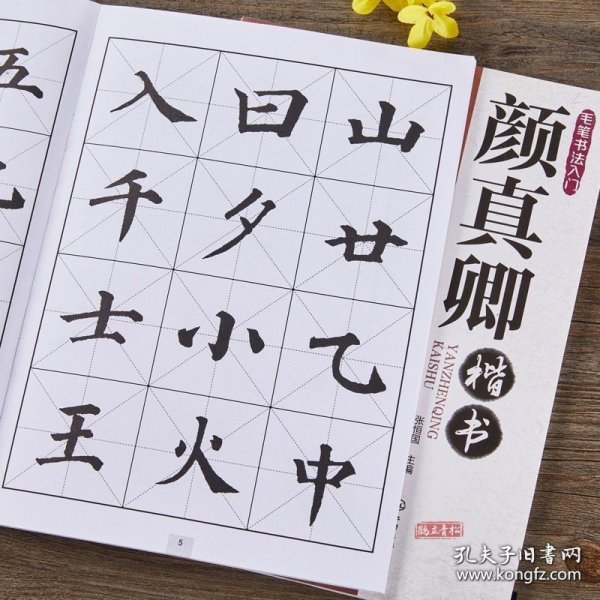 五
入曰山
千夕廿
士小乙
王火中
5
毛笔书法入门
颜真卿
楷书
YANZHENQING
KAISHU
张恒国 主编
鹤立青松
孔夫子旧书网
www.kongfz.com